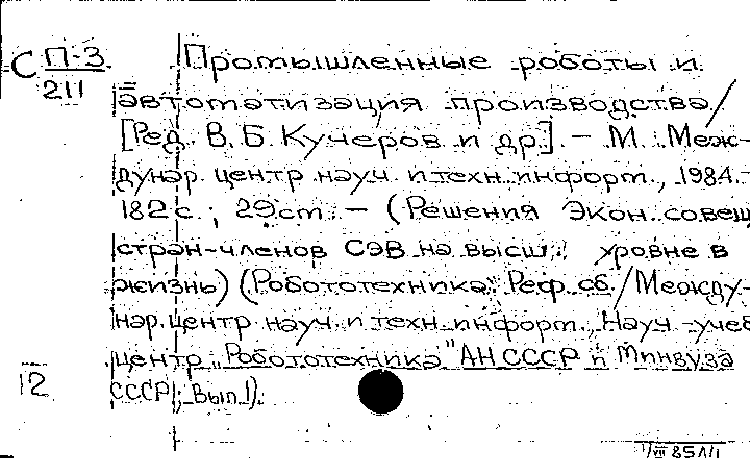 С П-3
211
Промышленные роботы и
автоматизация производства /
[Ред. В. Б. Кучеров и др]. - М. : Меж-
дунар. центр науч. и техн. информ., 1984. -
182 с.; 29 см. - (Решения Экон. совещ
стран-членов СЭВ на высш. уровне в
жизнь) (Робототехника: Реф. сб. / Между-
нар. центр науч. и техн. информ., Науч.-учеб
центр "Робототехника" АН СССР и Минвуза
СССР; Вып. 1).
12